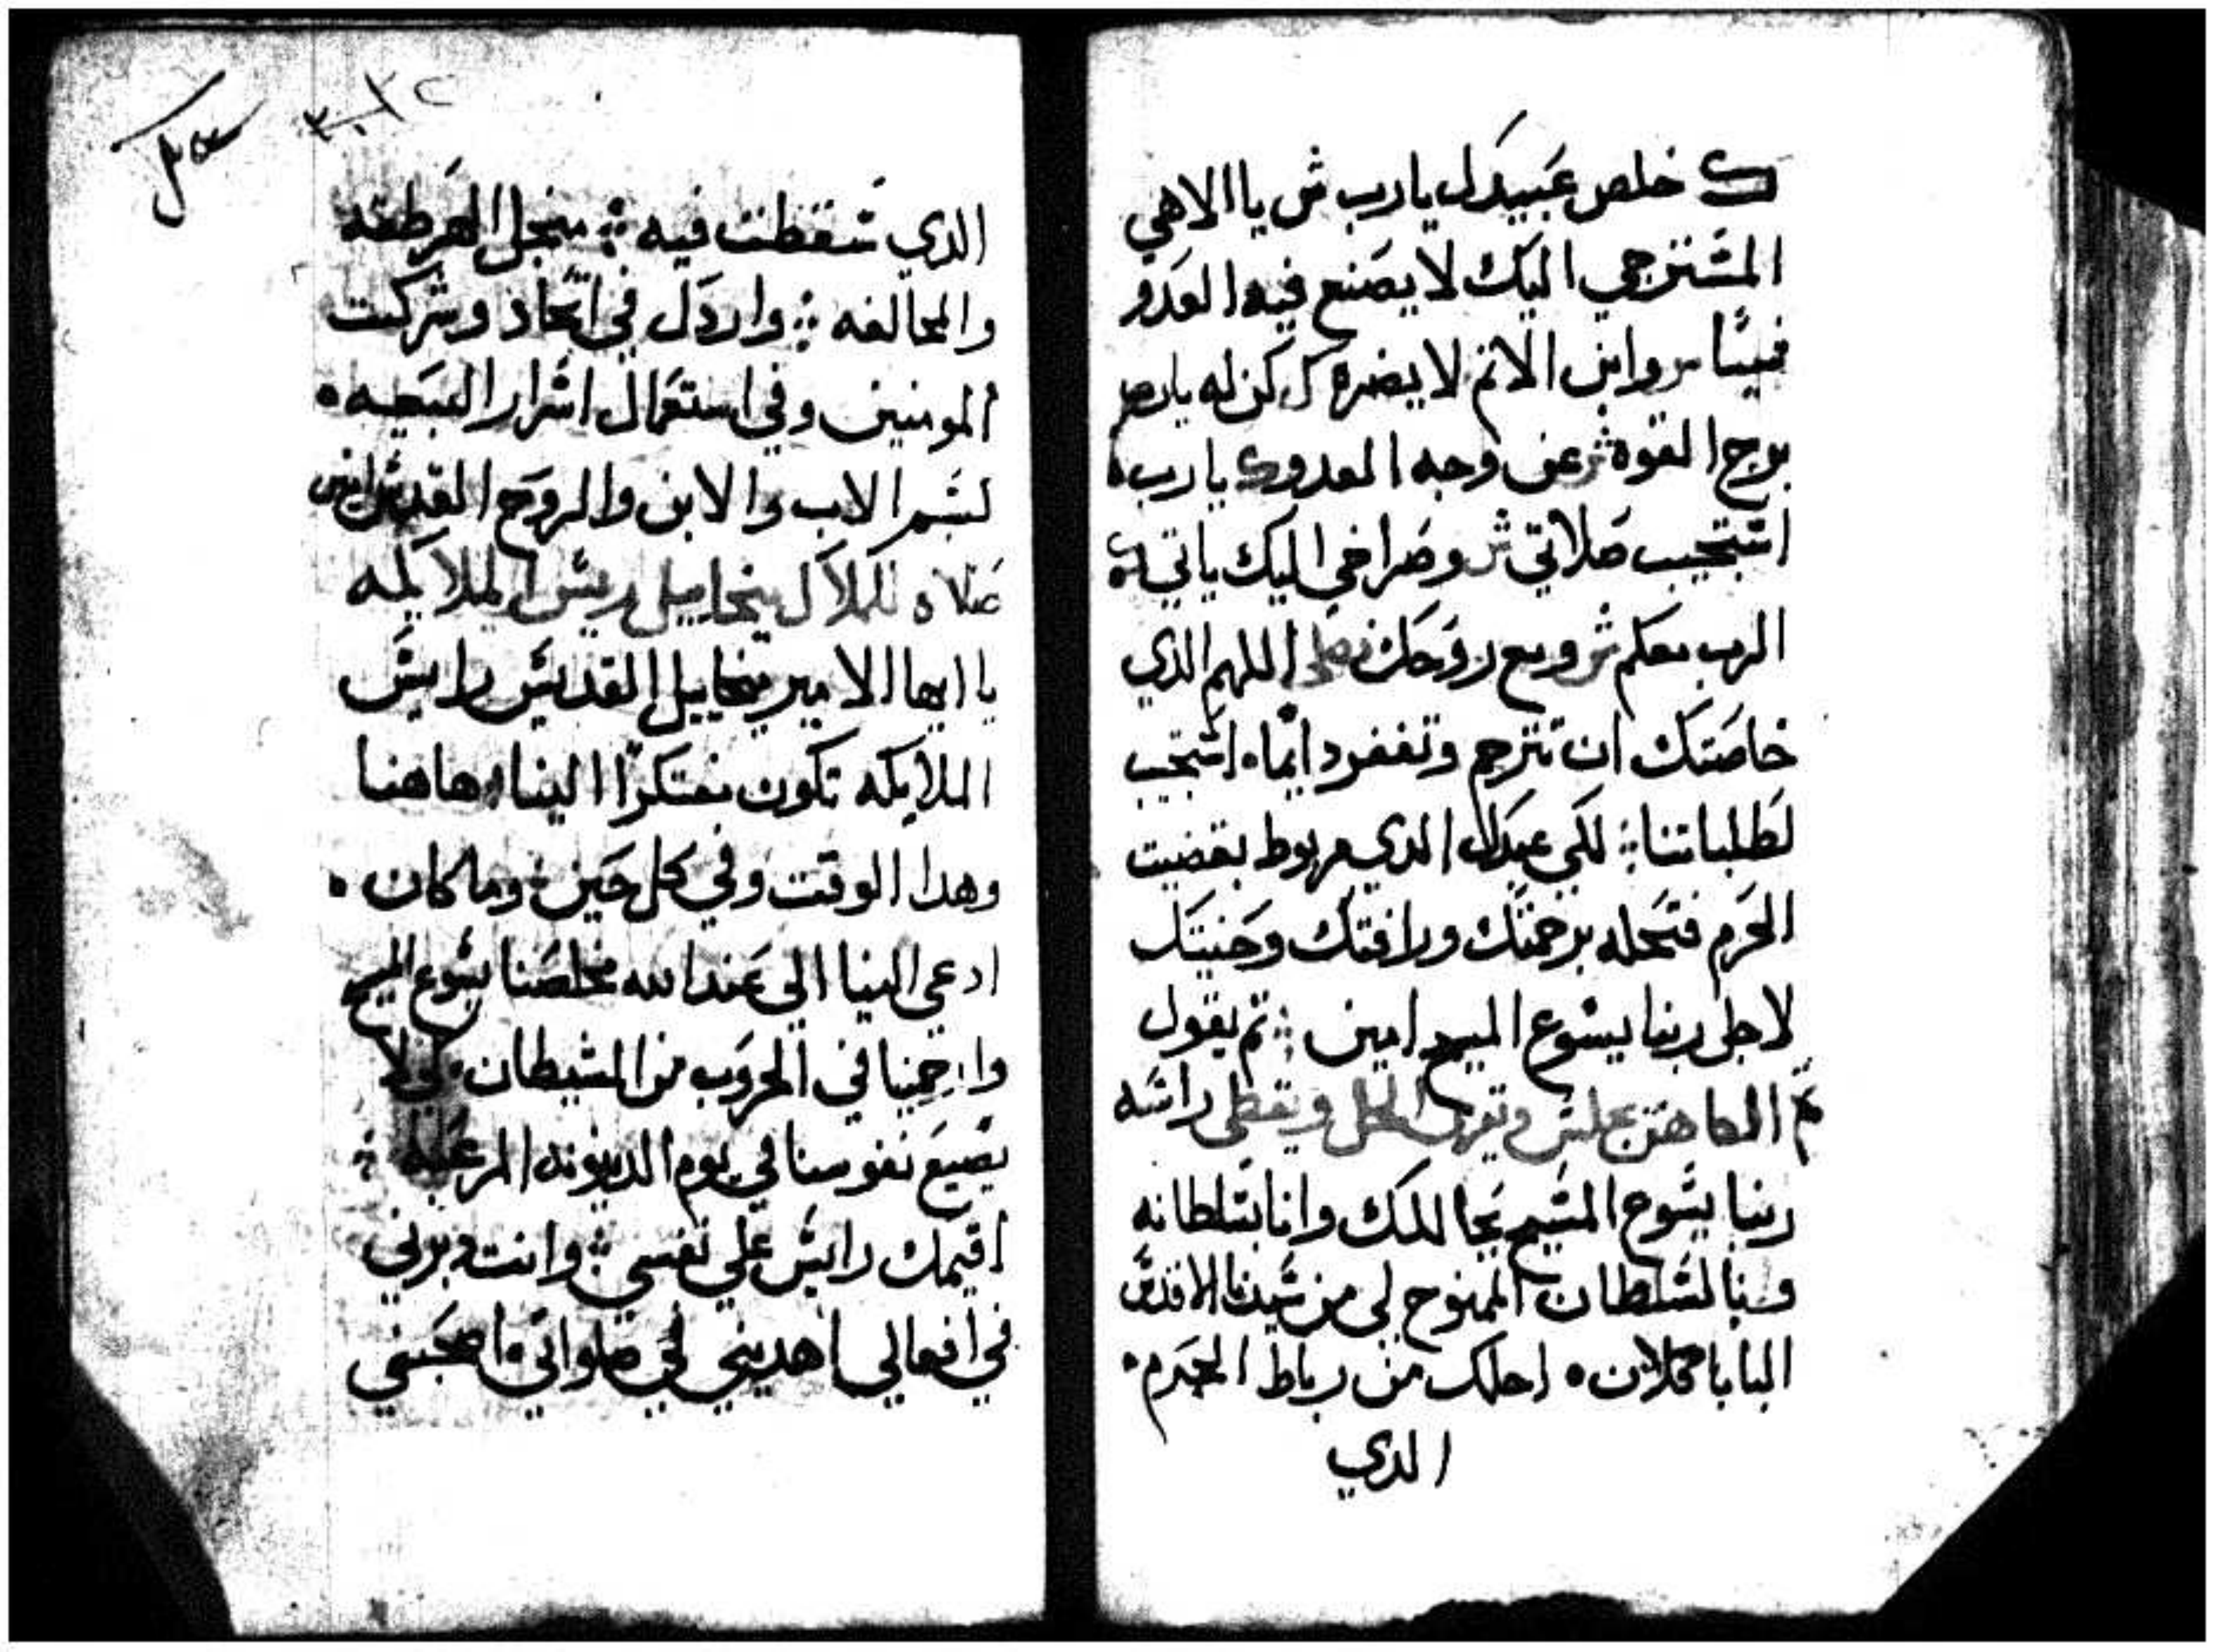 ک خلص عبيدك يا رب ش يا الاهي
المشترجي اليك لا يصنع فيه العدو
شيئا ش وابن الاثم لا يضره ک كن له يا رب
برج القوه ش عن وجه العدو ک يا رب
اشتجيب صلاتي ش وصراخي اليك ياتي ک
الرب معكم ش ومع روحك نصلي اللهم الذي
خاصتك ان تترحم وتغفر دايما اشتجب
لطلباتنا لكي عبدك الدي مربوط بقضيت
الحرم فتحله برحمتك ورافتك وحنيتك
لاجل ربنا يسوع المسيح امين ثم يقول
ثم الكاهن يجلس ويقرى الحل ويغطي راشه
ربنا يشوع المشيح يحاللك وانا بشلطانه
وبالشلطان الممنوح لي من شيدنا الاقدش
البابا فلان احلك من رباط الحرم
الدي
الدي شقطت فيه منجل الهرطقه
والمخالفه واردك في اتحاد وشركت
المومنين وفي استعمال اشرار البيعه
بشم الاب والابن والروح القدش امين
صلاه للملاك ميخاييل ريش الملايكه
يا ايها الامير ميخاييل القديش رايش
الملايكه تكون مفتكرا الينا هاهنا
وهدا الوقت وفي كل حين وما كان
ادعي الينا الي عند الله مخلصنا يشوع المسيح
وارحمنا في الحروب من الشيطان لكي لا
يضيع نفوسنا في يوم الدينونه المرعبه
اقيمك رايش علي نفسي وانت دبرني
في افعالي اهديني في صلواتي اصحبني